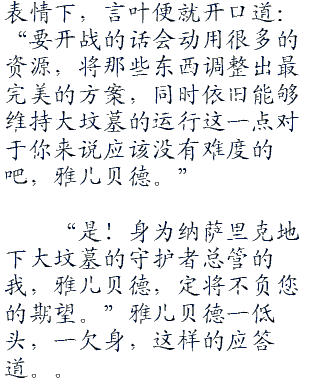 表情下，言叶便就开口道：
“要开战的话会动用很多的
资源，将那些东西调整出最
完美的方案，同时依旧能够
维持大坟墓的运行这一点对
于你来说应该没有难度的
吧，雅儿贝德。”
“是！身为纳萨里克地
下大坟墓的守护者总管的
我，雅儿贝德，定将不负您
的期望。”雅儿贝德一低
头，一欠身，这样的应答
道。。